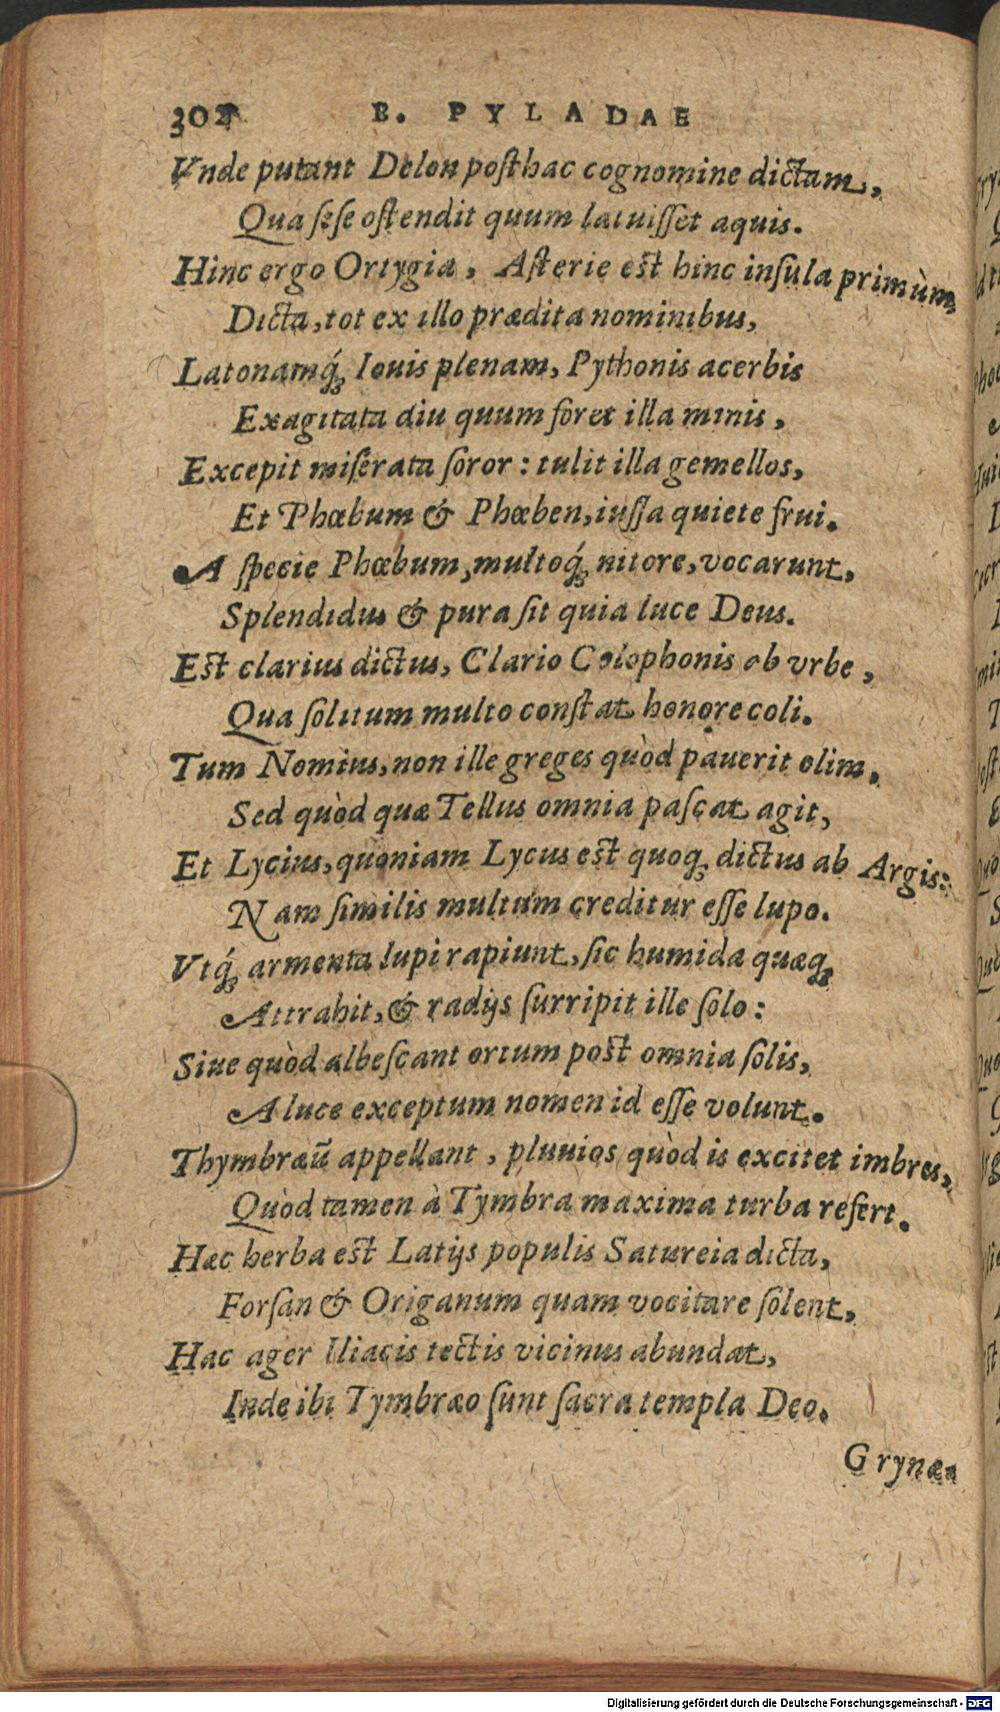 302 B. PYLADAE
Vnde putant Delon poſthac cognomine dictam,
Qua ſeſe oſtendit quum latuiſſet aquis.
Hinc ergo Ortygia, Aſterie eſt hinc inſula primùm
Dicta, tot ex illo prædita nominibus,
Latonamq́; Iouis plenam, Pythonis acerbis
Exagitata diu quum foret illa minis,
Excepit miſerata ſoror: tulit illa gemellos,
Et Phœbum & Phœben, iuſſa quiete frui.
A ſpecie Phœbum, multoq́; nitore, vocarunt,
Splendidus & pura ſit quia luce Deus.
Eſt clarius dictus, Clario Colophonis ob vrbe,
Qua ſolitum multo conſtat honore coli.
Tum Nomius, non ille greges quòd pauerit olim,
Sed quòd quæ Tellus omnia paſcat agit,
Et Lycius, quoniam Lycus eſt quoq; dictus ab Argis:
Nam ſimilis multùm creditur eſſe lupo.
Vtq́; armenta lupi rapiunt, ſic humida quæq;
Attrahit, & radijs ſurripit ille ſolo:
Siue quòd albeſcant ortum poſt omnia ſolis,
A luce exceptum nomen id eſſe volunt.
Thymbræū appellant, pluuios quòd is excitet imbres,
Quòd tamen à Tymbra maxima turba refert.
Hæc herba eſt Latijs populis Satureia dicta,
Forſan & Origanum quam vocitare ſolent,
Hac ager Iliacis tectis vicinus abundat,
Inde ibi Tymbræo ſunt ſacra templa Deo.
Grynæ-
Digitalisierung gefördert durch die Deutsche Forschungsgemeinschaft - DFG